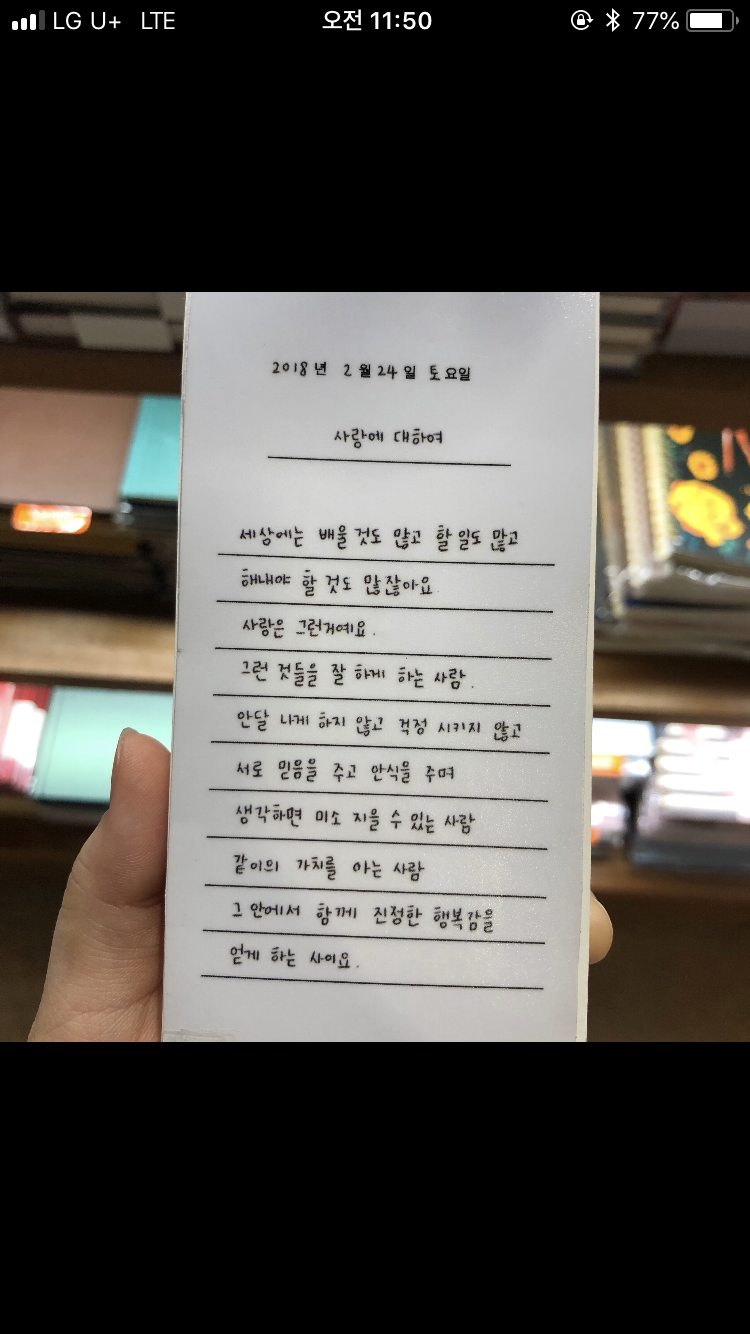 LG U+ LTE 오전 11:50 77%
2018년 2월 24일 토요일
사랑에 대하여
세상에는 배울 것도 많고 할 일도 많고
해내야 할 것도 많잖아요.
사랑은 그런거예요.
그런 것들을 잘 하게 하는 사람.
안달 나게 하지 않고 걱정 시키지 않고
서로 믿음을 주고 안식을 주며
생각하면 미소 지을 수 있는 사람
같이의 가치를 아는 사람
그 안에서 함께 진정한 행복감을
얻게 하는 사이요.